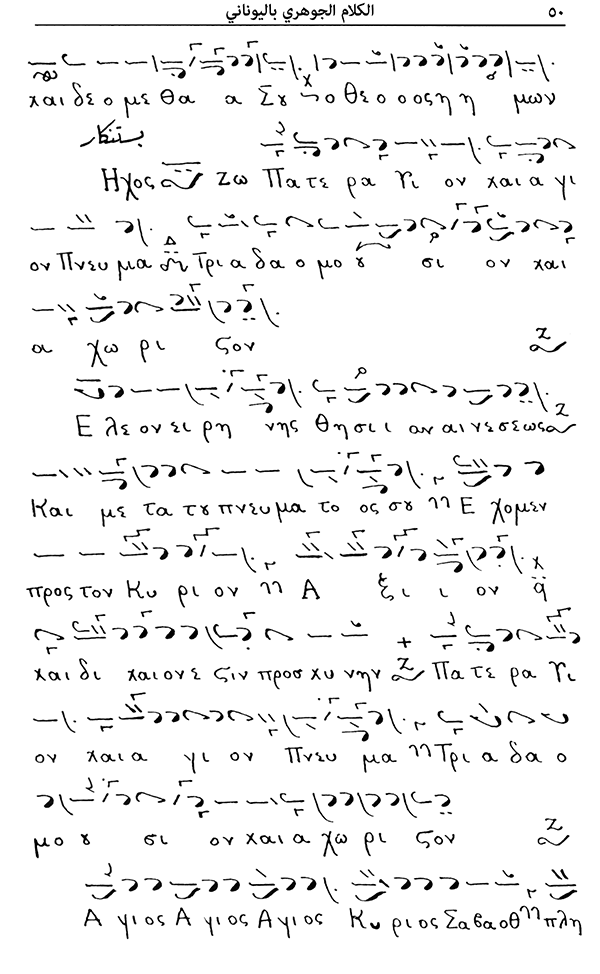 الكلام الجوهري باليوناني ٥٠
και δε ο με θα α Σου ο θε ο ο ος η η μων
بستنكار
Ηχος Ζω Πα τε ρα Υι ον και α γι
ον Πνευ μα Τρι α δα ο μο ου σι ον και
α χω ρι ςον
Ε λε ον ει ρη νης θη σι ι αν αι νε σε ως
Και με τα του πνευ μα το ος σου Ε χο μεν
προς τον Κυ ρι ον Α ξι ι ον
και δι και ον ε ςιν προσ κυ νην Πα τε ρα Υι
ον και α γι ον Πνευ μα Τρι α δα ο
μο ου σι ον και α χω ρι ςον
Α γιος Α γιος Α γιος Κυ ρι ος Σα βα οθ πλη